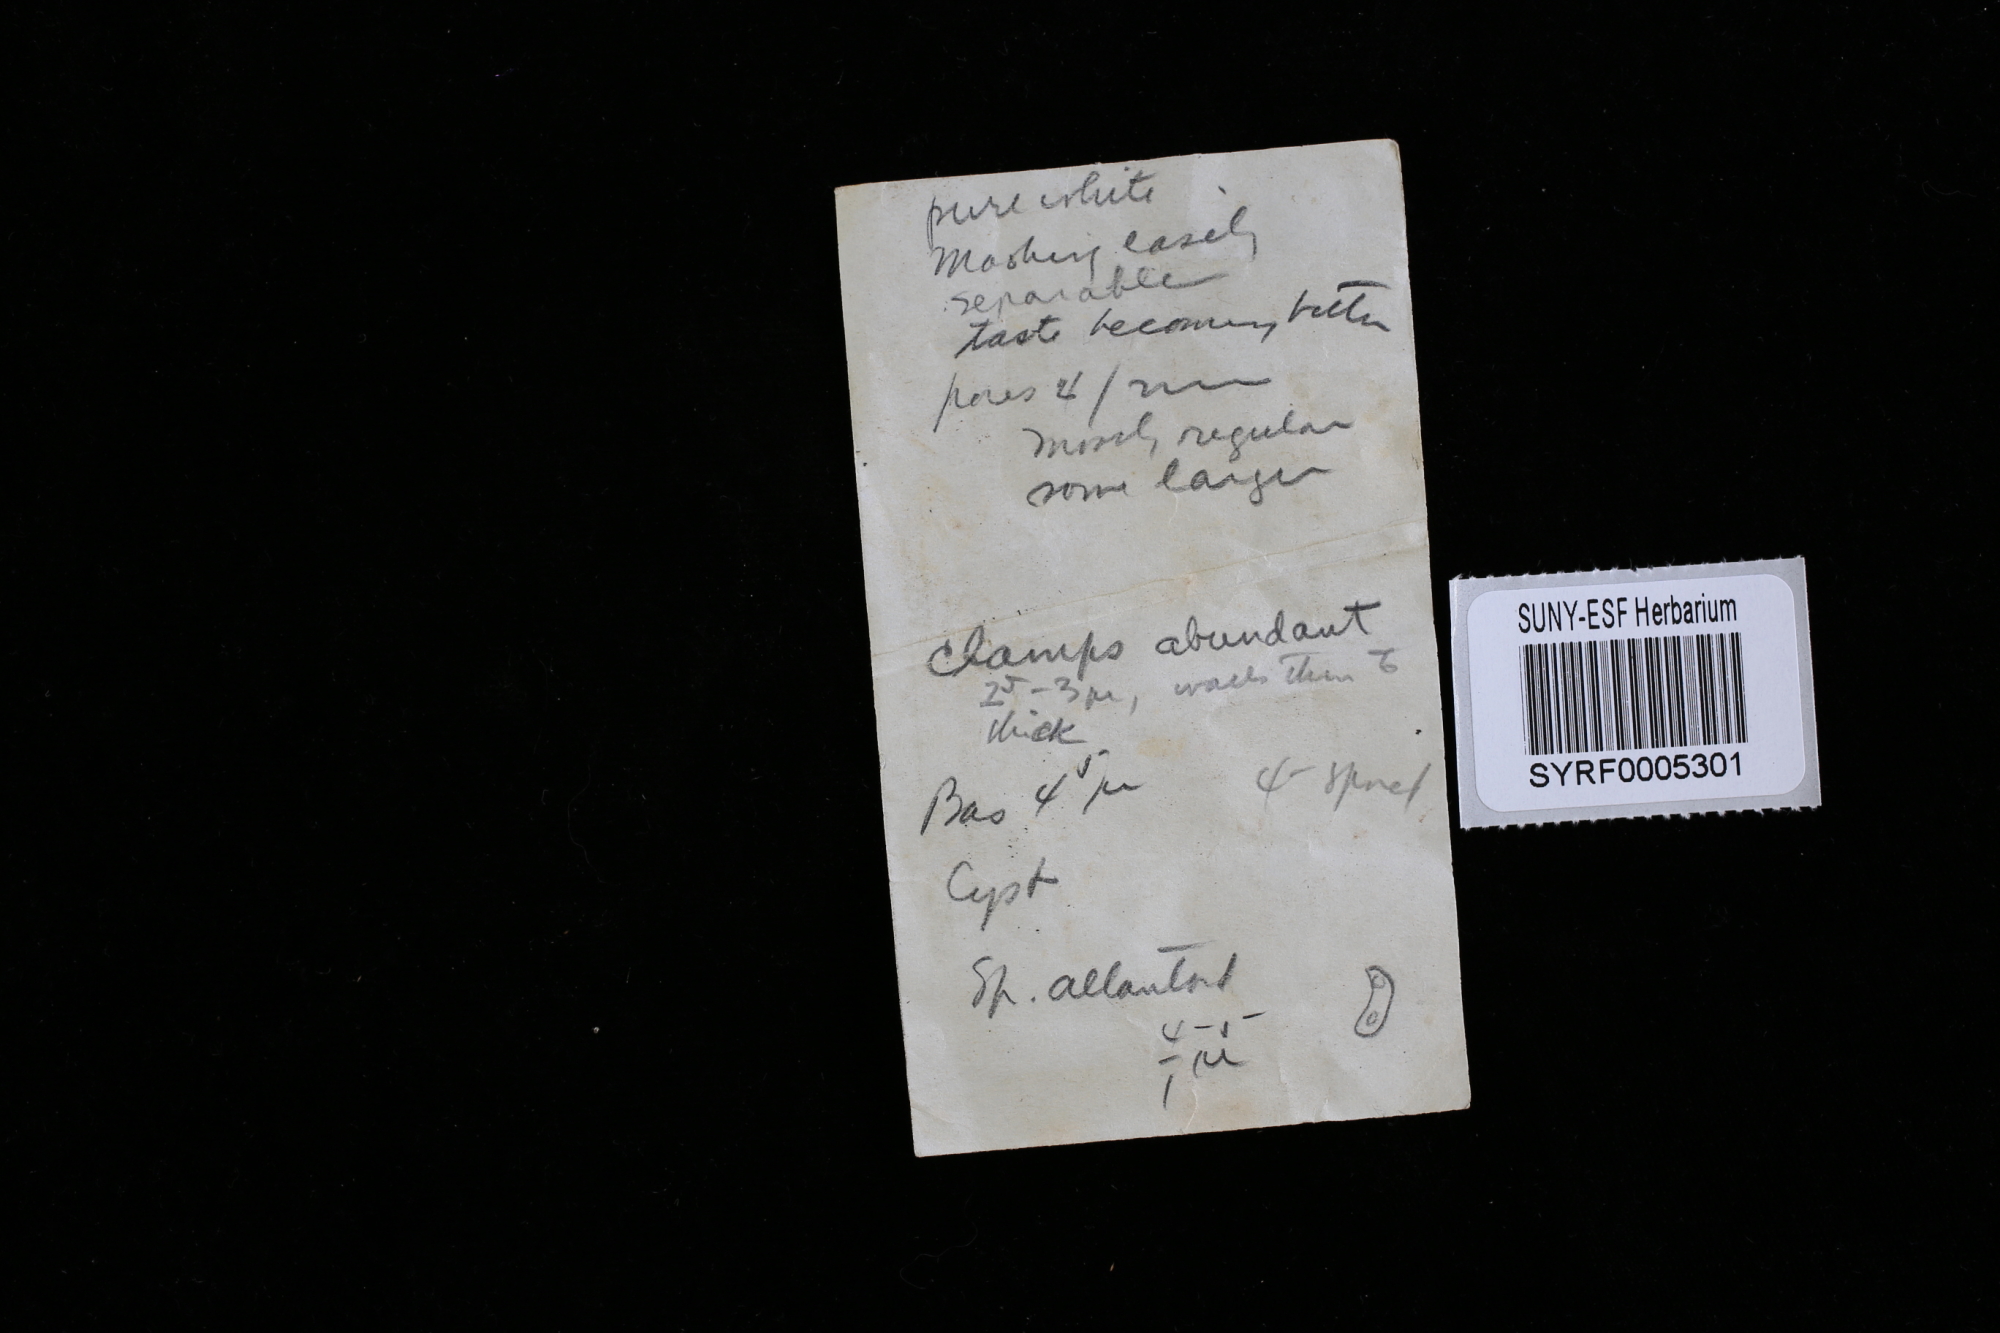 pure white
Mashing easily
separable
taste becoming bitter
pores 4/mm
Mostly regular
some larger
Clamps abundant
2⁵-3μ, walls thin to
thick
Bas 4⁵μ 4-spored
Cyst
Sp. allantoid
4-5
-1 μ
SUNY-ESF Herbarium
SYRF0005301